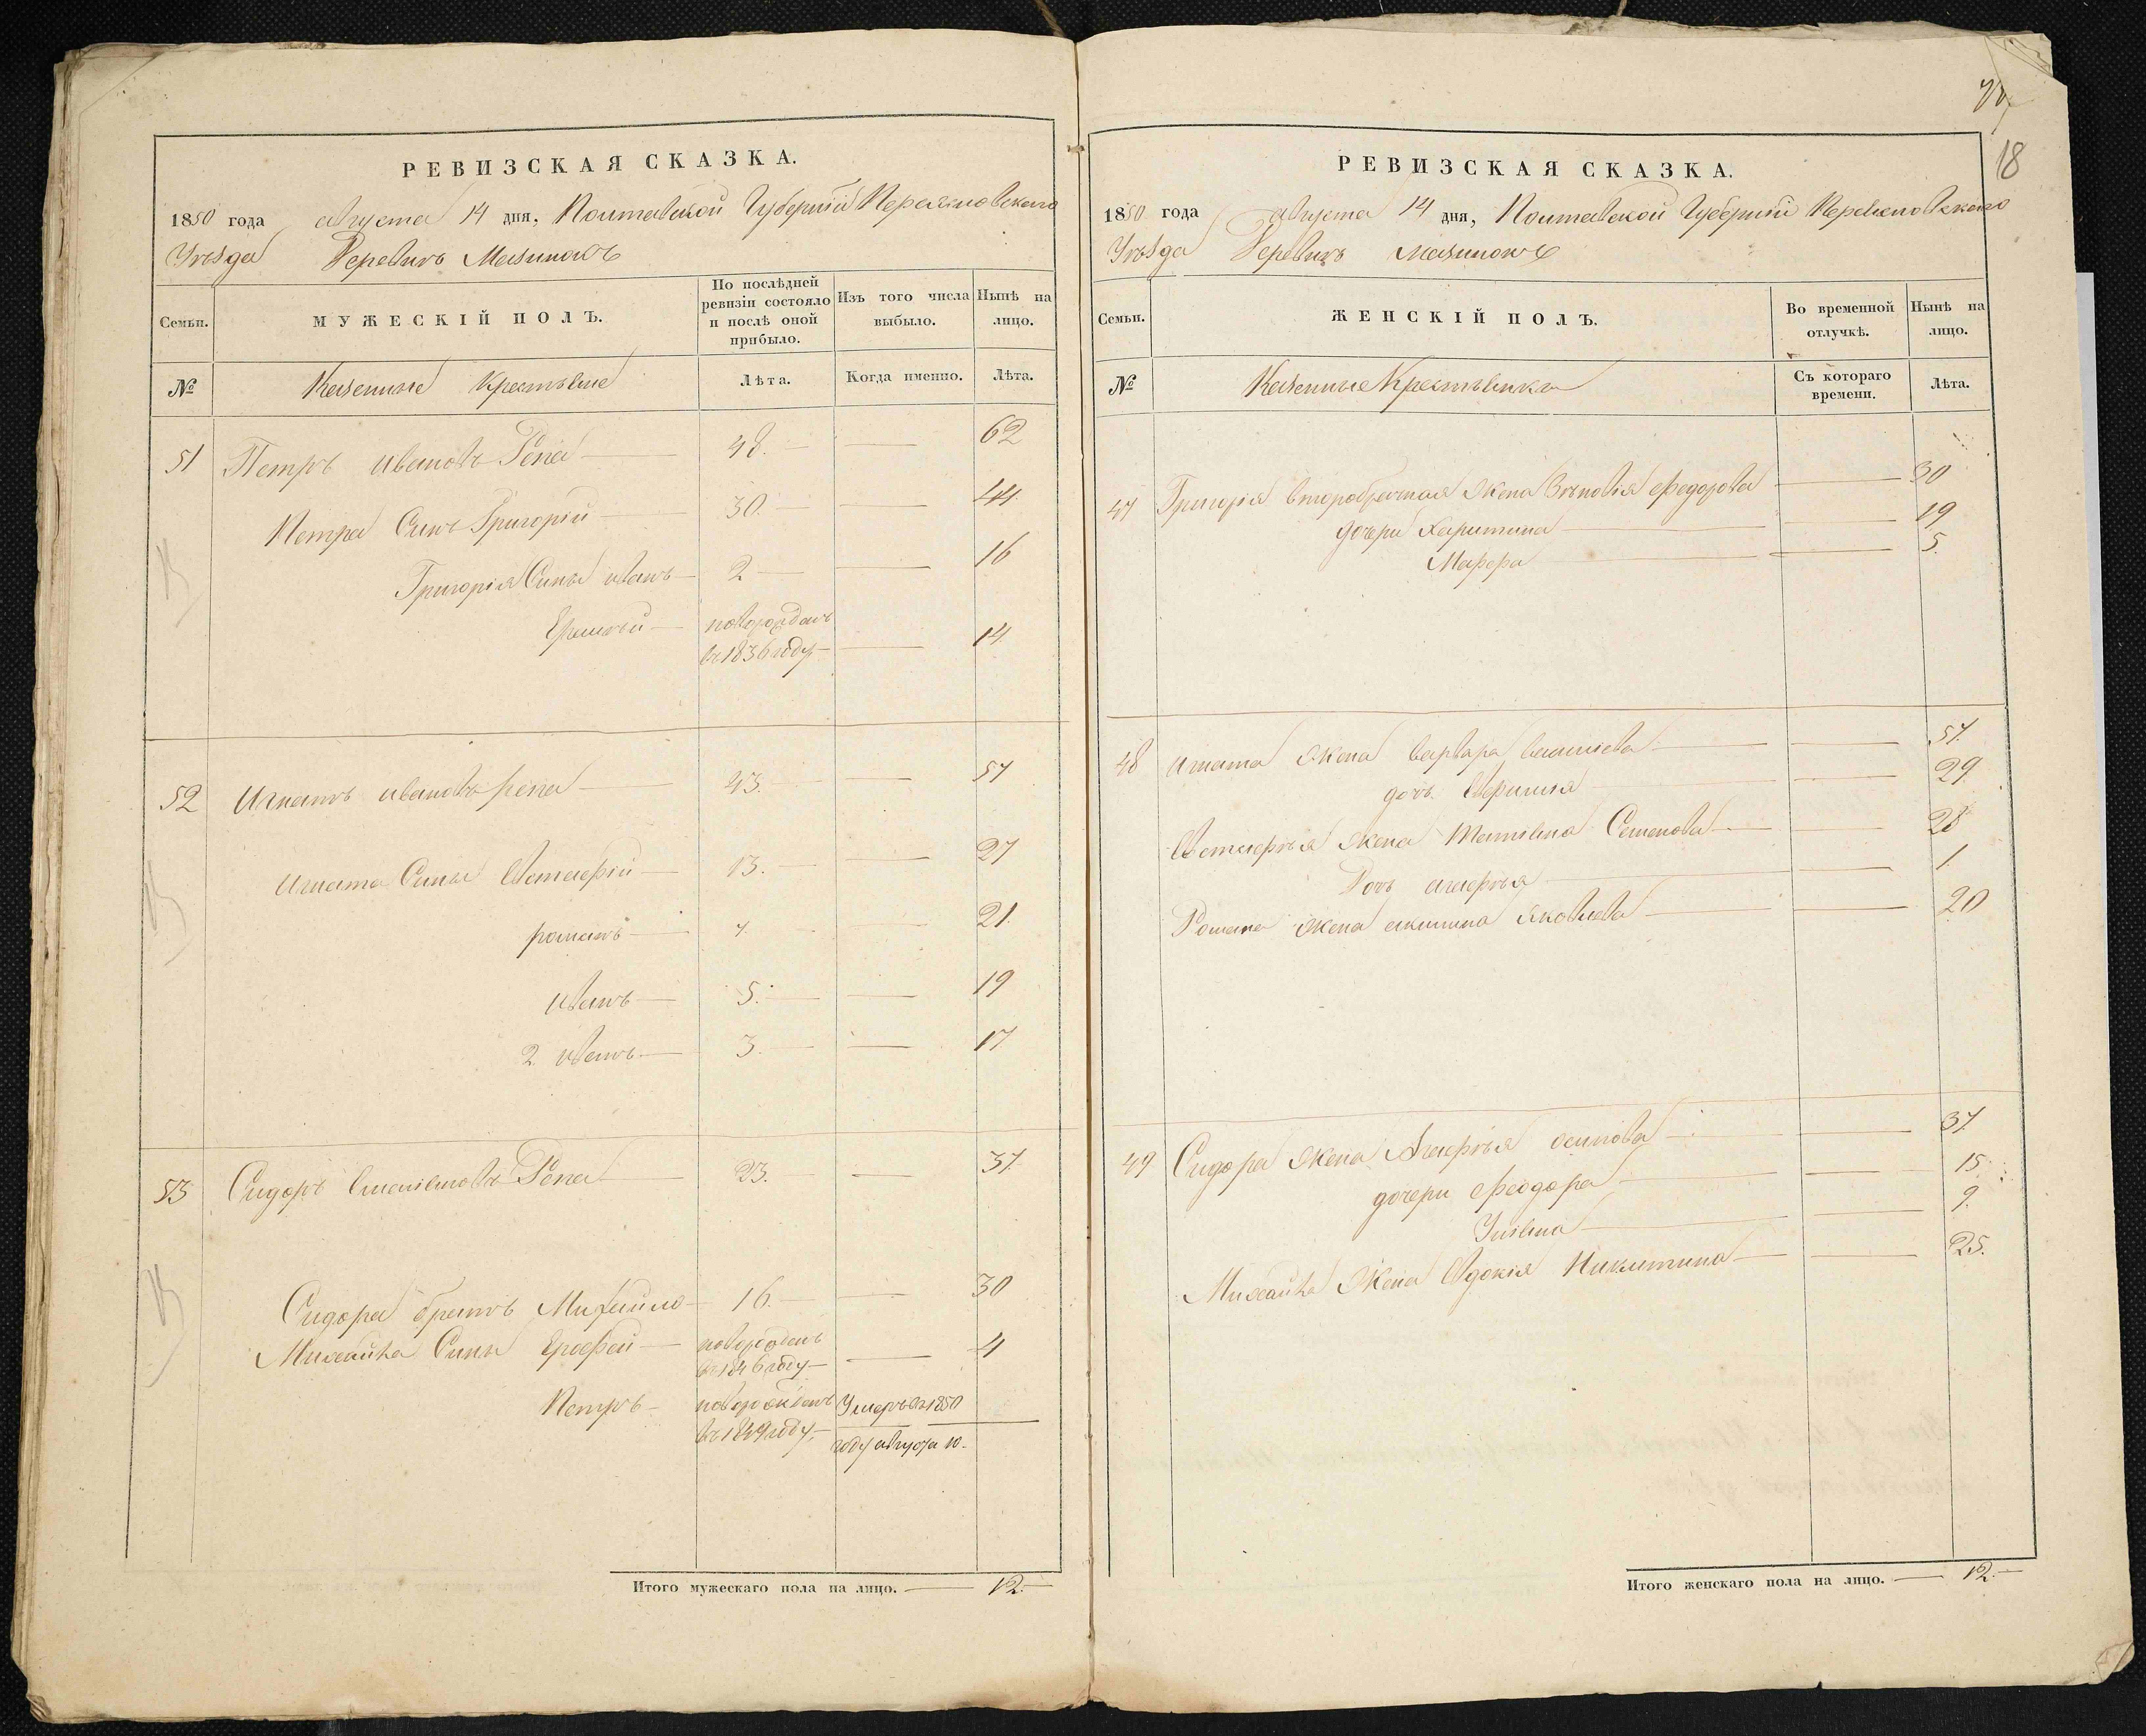 РЕВИЗСКАЯ СКАЗКА.
1850 года августа 14 дня, Полтавской Губернiи Переяславскаго
Уѣзда Деревни Мазинокъ
Семьи. МУЖЕСКIЙ ПОЛЪ. По послѣдней ревизiи состояло и послѣ оной прибыло. Изъ того числа выбыло. Нынѣ на лицо.
№ Казенные Крестьяне Лѣта. Когда именно. Лѣта.
51 Петръ Ивановъ Репа 48. 62
Петра Сынъ Григорiй 30. 44
Григорiя Сыны иванъ 2 16
новорожденъ
въ 1836 году 14
52 Игнатъ ивановъ репа 43. 57
Игната Сыны Евстафiй 13. 27
романъ 7. 21.
иванъ 5. 19
2 иванъ 3. 17
53 Сидоръ Репа 23. 37.
Сидора братъ Михайло 16. 30
Михайла Сыны Ерофей новорожденъ
въ 1846 году 4
Петръ новорожденъ Умеръ въ 1850
въ 1849 году году августа 10.
Итого мужескаго пола на лицо. 12.
18
РЕВИЗСКАЯ СКАЗКА.
1850 года августа 14 дня, Полтавской Губернiи Переяславскаго
Уѣзда Деревни Мазинокъ
Семьи. ЖЕНСКIЙ ПОЛЪ. Во временной отлучкѣ. Нынѣ на лицо.
№ Казенные Крестьянки Съ котораго времени. Лѣта.
47 Григорiя второбрачная Жена Зѣновiя Федорова 30
дочери Харитина 19
Марфа 5.
48 Игната Жена варвара васильева 57.
дочь 29.
Евстафiя Жена Татiяна Семенова 28
Дочь агафiя 1.
Романа Жена акилина Яковлева 20
49 Сидора Жена Агафiя осипова 37.
дочери Феодора 15.
Улiяна 9.
Михайла Жена Евдокiя Никитина 25.
Итого женскаго пола на лицо. 12.